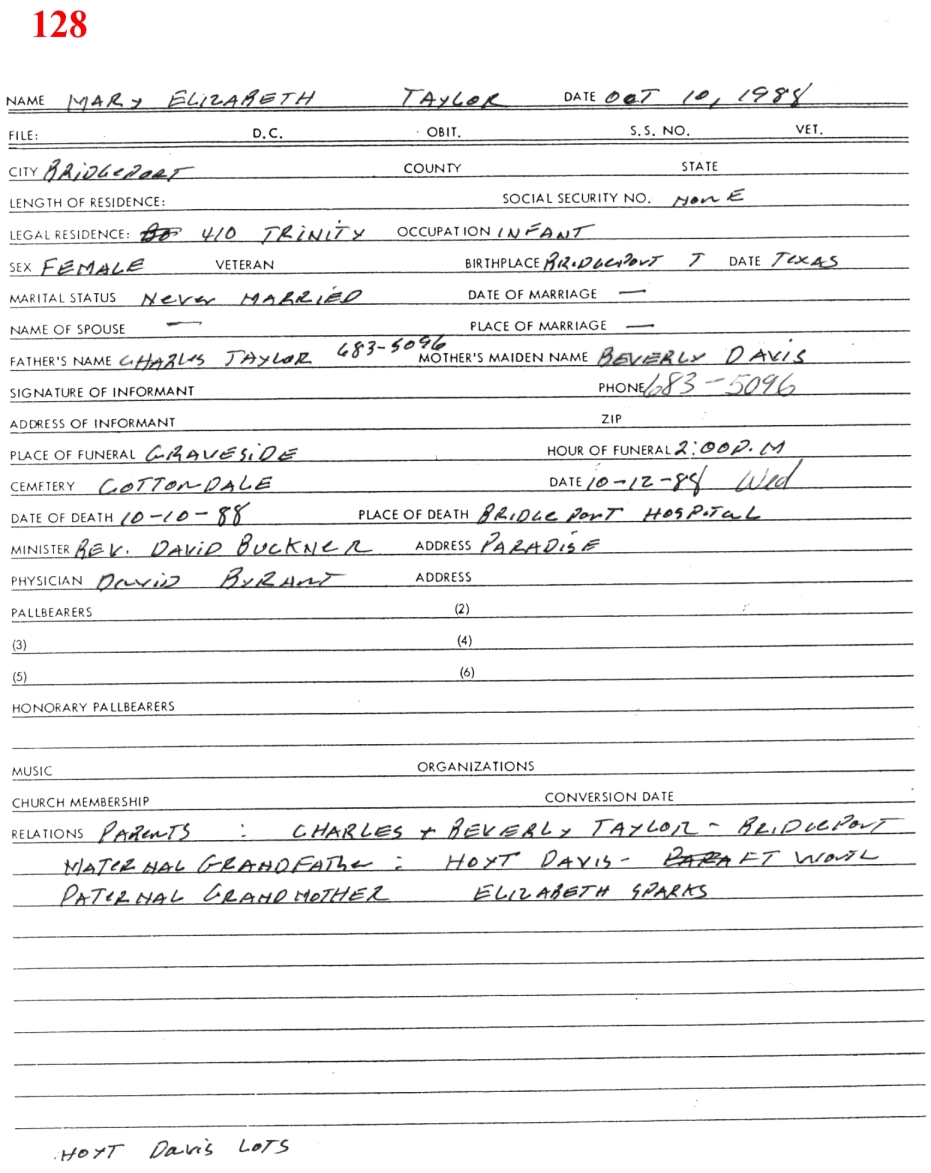 128
NAME MARY ELIZABETH TAYLOR DATE OCT 10, 1988
FILE: D.C. OBIT. S.S. NO. VET.
CITY BRIDGEPORT COUNTY STATE
LENGTH OF RESIDENCE: SOCIAL SECURITY NO. NONE
LEGAL RESIDENCE: 410 TRINITY OCCUPATION INFANT
SEX FEMALE VETERAN BIRTHPLACE BRIDGEPORT T DATE TEXAS
MARITAL STATUS NEVER MARRIED DATE OF MARRIAGE —
NAME OF SPOUSE — PLACE OF MARRIAGE —
FATHER'S NAME CHARLES TAYLOR 683-5096 MOTHER'S MAIDEN NAME BEVERLY DAVIS
SIGNATURE OF INFORMANT PHONE 683-5096
ADDRESS OF INFORMANT ZIP
PLACE OF FUNERAL GRAVESIDE HOUR OF FUNERAL 2:00 P.M
CEMETERY COTTONDALE DATE 10-12-88 Wed
DATE OF DEATH 10-10-88 PLACE OF DEATH BRIDGEPORT HOSPITAL
MINISTER REV. DAVID BUCKNER ADDRESS PARADISE
PHYSICIAN David BYRANT ADDRESS
PALLBEARERS (2)
(3) (4)
(5) (6)
HONORARY PALLBEARERS
MUSIC ORGANIZATIONS
CHURCH MEMBERSHIP CONVERSION DATE
RELATIONS PARENTS : CHARLES + BEVERLY TAYLOR - BRIDGEPORT
MATERNAL GRANDFATHER : HOYT DAVIS - PARA FT WORTH
PATERNAL GRANDMOTHER ELIZABETH SPARKS
HOYT Davis LOTS